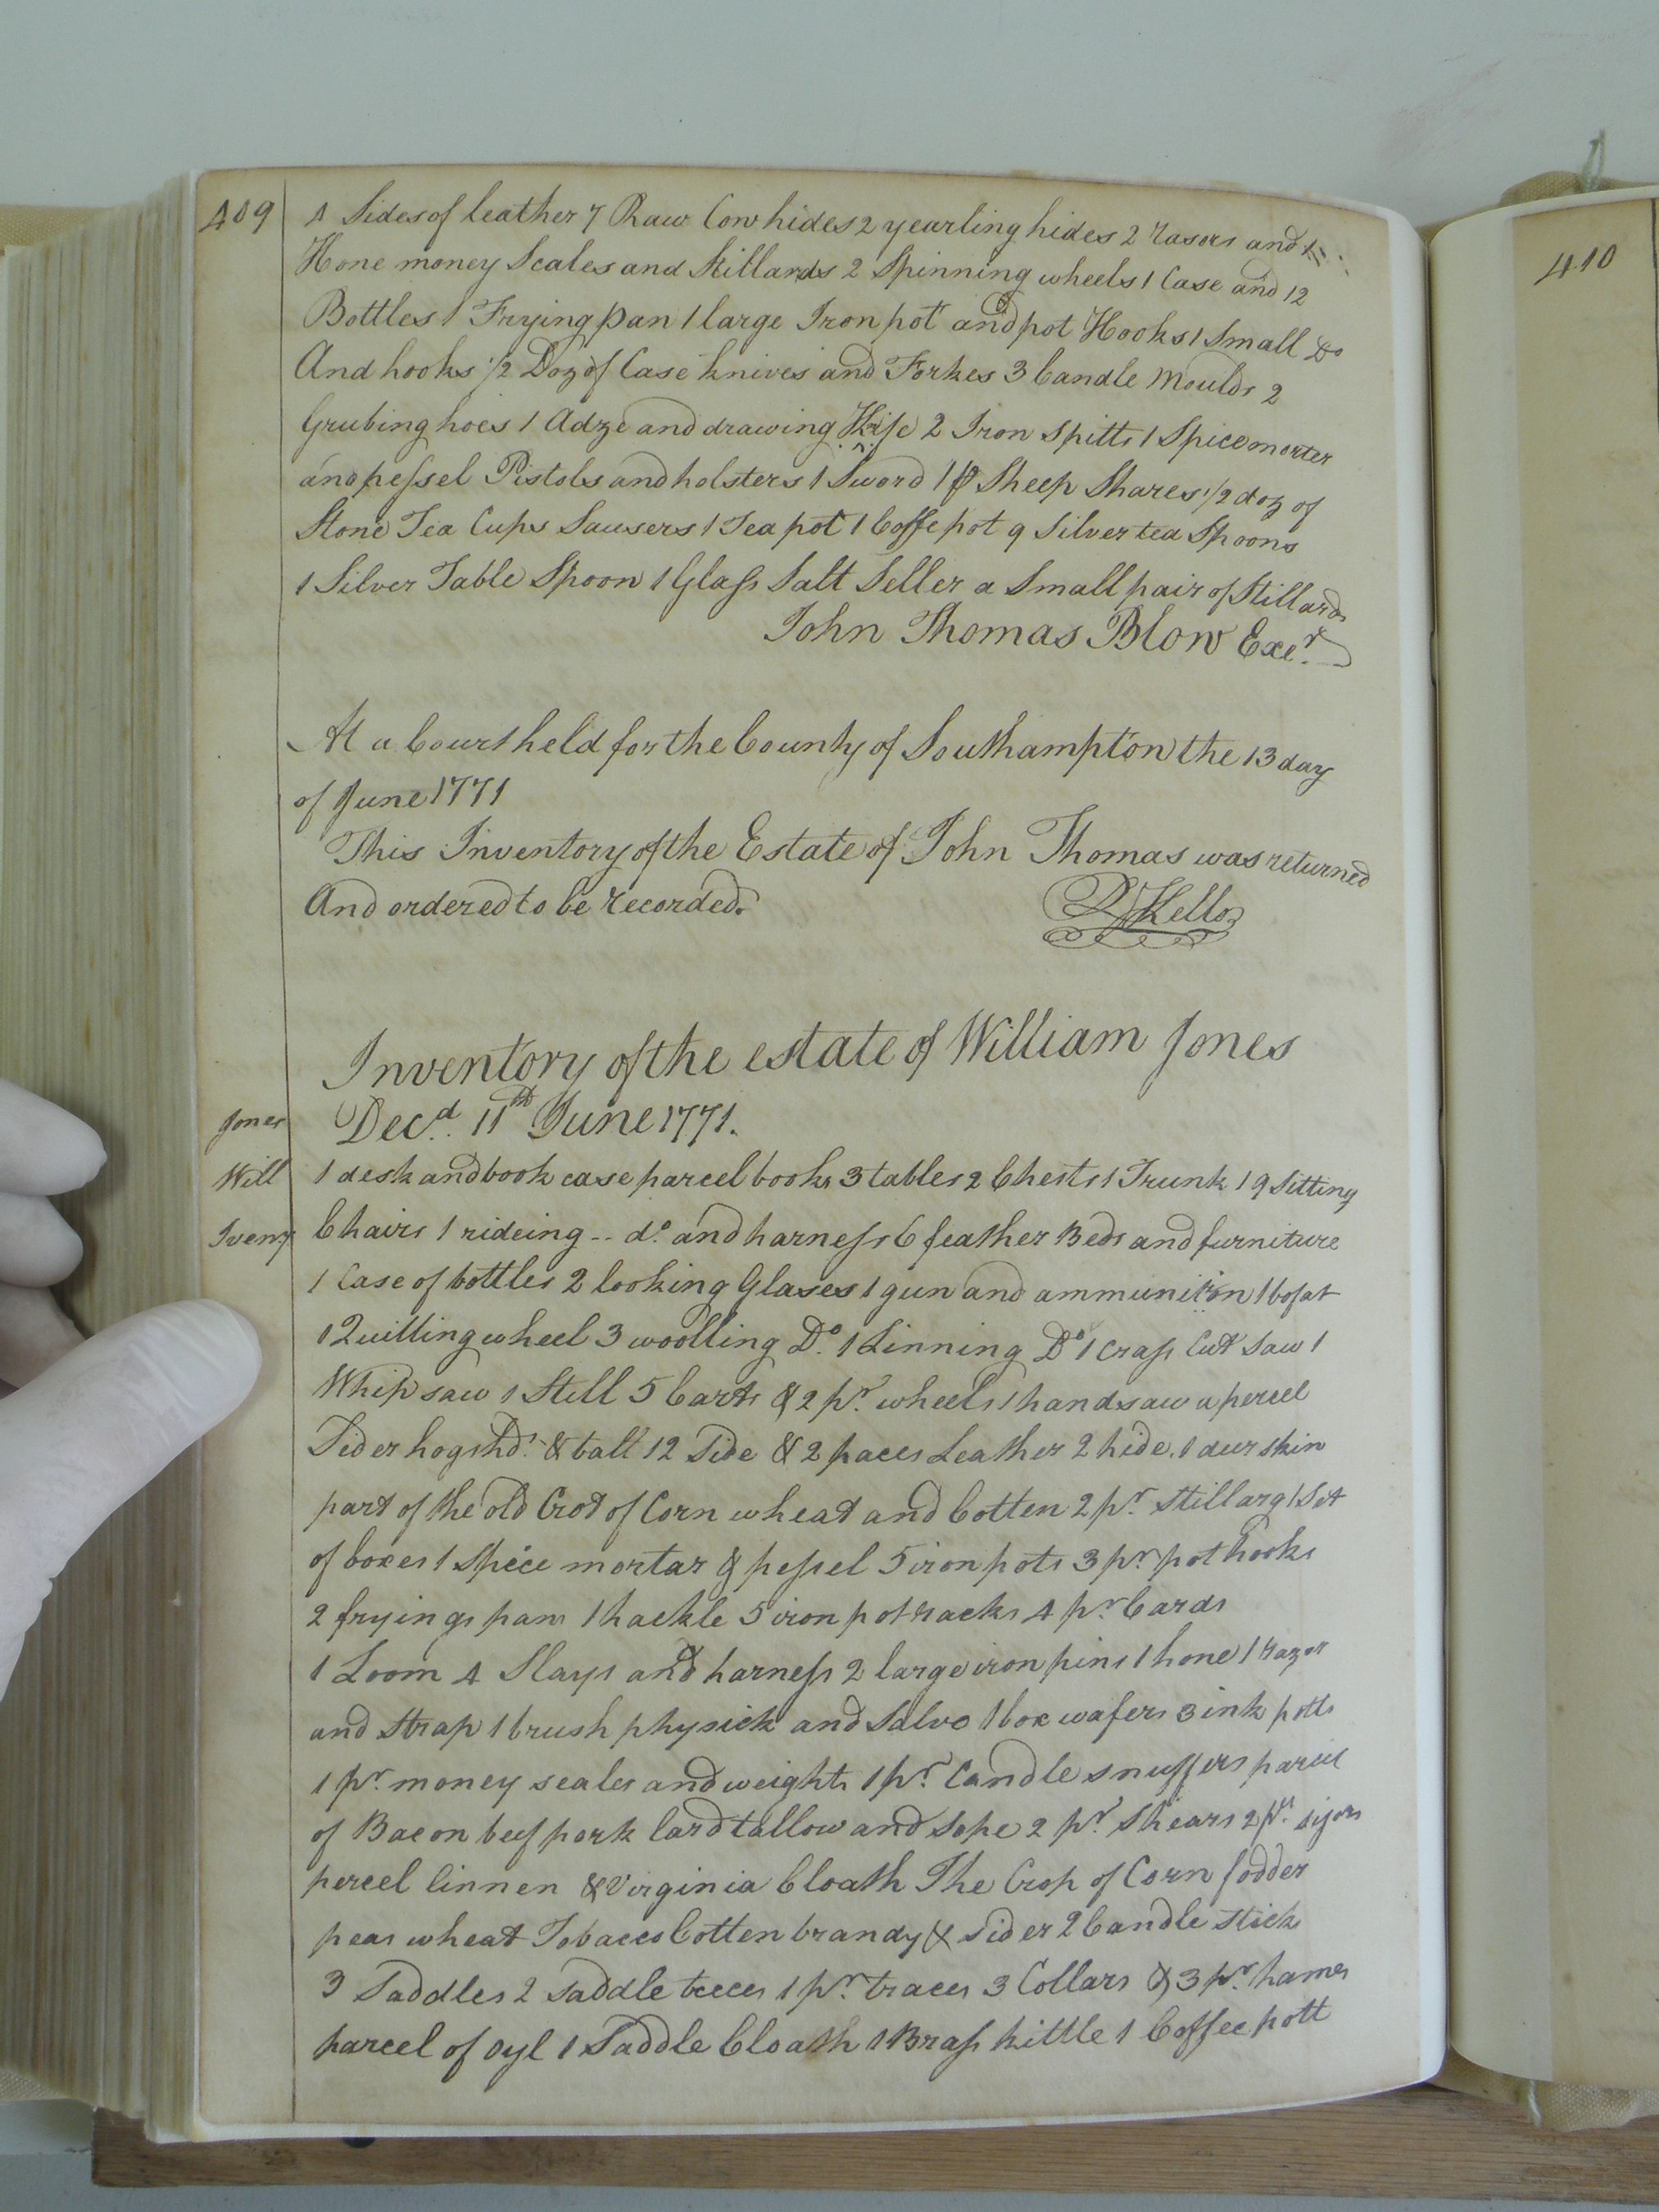 409
4 Sides of leather 7 Raw Cow hides 2 yearling hides 2 rasors and 1
Hone money Scales and Stillards 2 Spinning wheels 1 Case and 12
Bottles 1 Frying pan 1 large Iron pot and pot Hooks 1 Small Do
And hooks 1/2 Doz of Case knives and Forkes 3 Candle Moulds 2
Grubing hoes 1 Adze and drawing 2 Iron Spitts 1 Spice morter
and pessel Pistols and holsters 1 Sword 1 p Sheep Shares 1/2 doz of
Stone Tea Cups Sausers 1 Tea pot 1 Coffe pot 9 Silver tea Spoons
1 Silver Table Spoon 1 Glass Salt Seller a Small pair of Stillards
John Thomas Blow Exer.
At a Court held for the County of Southampton the 13 day
of June 1771
This Inventory of the Estate of John Thomas was returned
And ordered to be recorded.
R Kello
Inventory of the estate of William Jones
Jones
Decd. 11th June 1771.
Will
1 desk and book case parcel books 3 tables 2 Chests 1 Trunk 19 Sitting
Iveny
Chairs 1 rideing -- do. and harness 6 feather Beds and furniture
1 Case of bottles 2 looking Glases 1 gun and ammunition 1 bofat
1 Quilling wheel 3 woolling Do. 1 Linning Do 1 Crass Cut Saw 1
Whip saw 1 Still 5 Carts & 2 pr. wheels 1 handsaw a percel
Sider hogshds. & tall 12 Side & 2 paces Leather 2 hide. 1 deer skin
part of the old Crot of Corn wheat and Cotten 2 pr. Stillarg 1 Set
of boxes 1 Spice mortar & pessel 5 iron pots 3 pr pot hooks
2 frying pans 1 hackle 5 iron pot racks 4 pr Cards
1 Loom 4 Slays and harness 2 large iron pins 1 hone 1 razor
and strap 1 brush physick and Salvo 1 box wafers 3 ink potts
1 pr. money scales and weights 1 pr. Candle snuffers parcel
of Bacon beef pork lard tallow and Sope 2 pr. Shears 2 pr.
percel linnen & Virginia Cloath The Crop of Corn fodder
peas wheat Tobacco Cotten brandy & Sider 2 Candle stick
3 Saddles 2 saddle trees 1 pr. traces 3 Collars & 3 pr. hames
parcel of oyl 1 Saddle Cloath 1 Brass kittle 1 Coffee pott
410